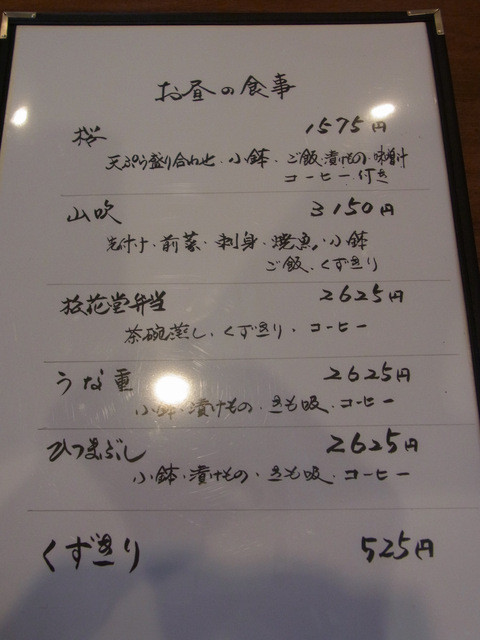 お昼の食事
桜 1575円
天ぷら盛り合わせ・小鉢・ご飯・漬けもの・味噌汁
コーヒー付き
山吹 3150円
先付け・前菜・刺身・焼魚・小鉢
ご飯、くずきり
松花堂弁当 2625円
茶碗蒸し、くずきり・コーヒー
うな重 2625円
小鉢・漬けもの・きも吸・コーヒー
ひつまぶし 2625円
小鉢・漬けもの・きも吸・コーヒー
くずきり 525円